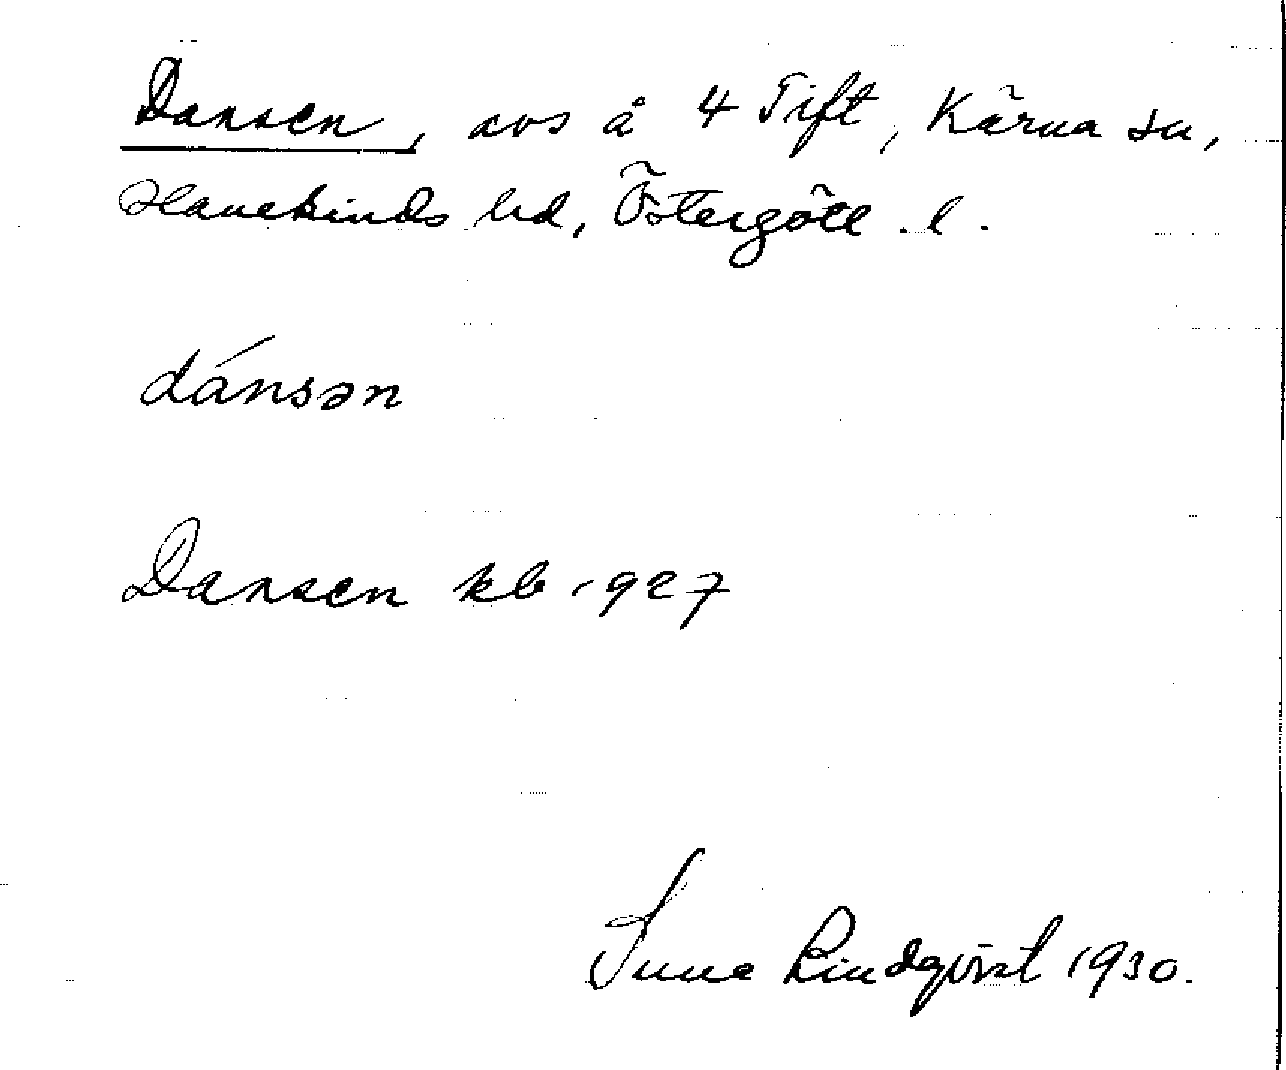 Dansen, avs å 4 Tift, Kärna sn,
Hanekinds hd, Östergötl. l.
dánsən
Dansen kb 1927
Sune Lindqvist 1930.